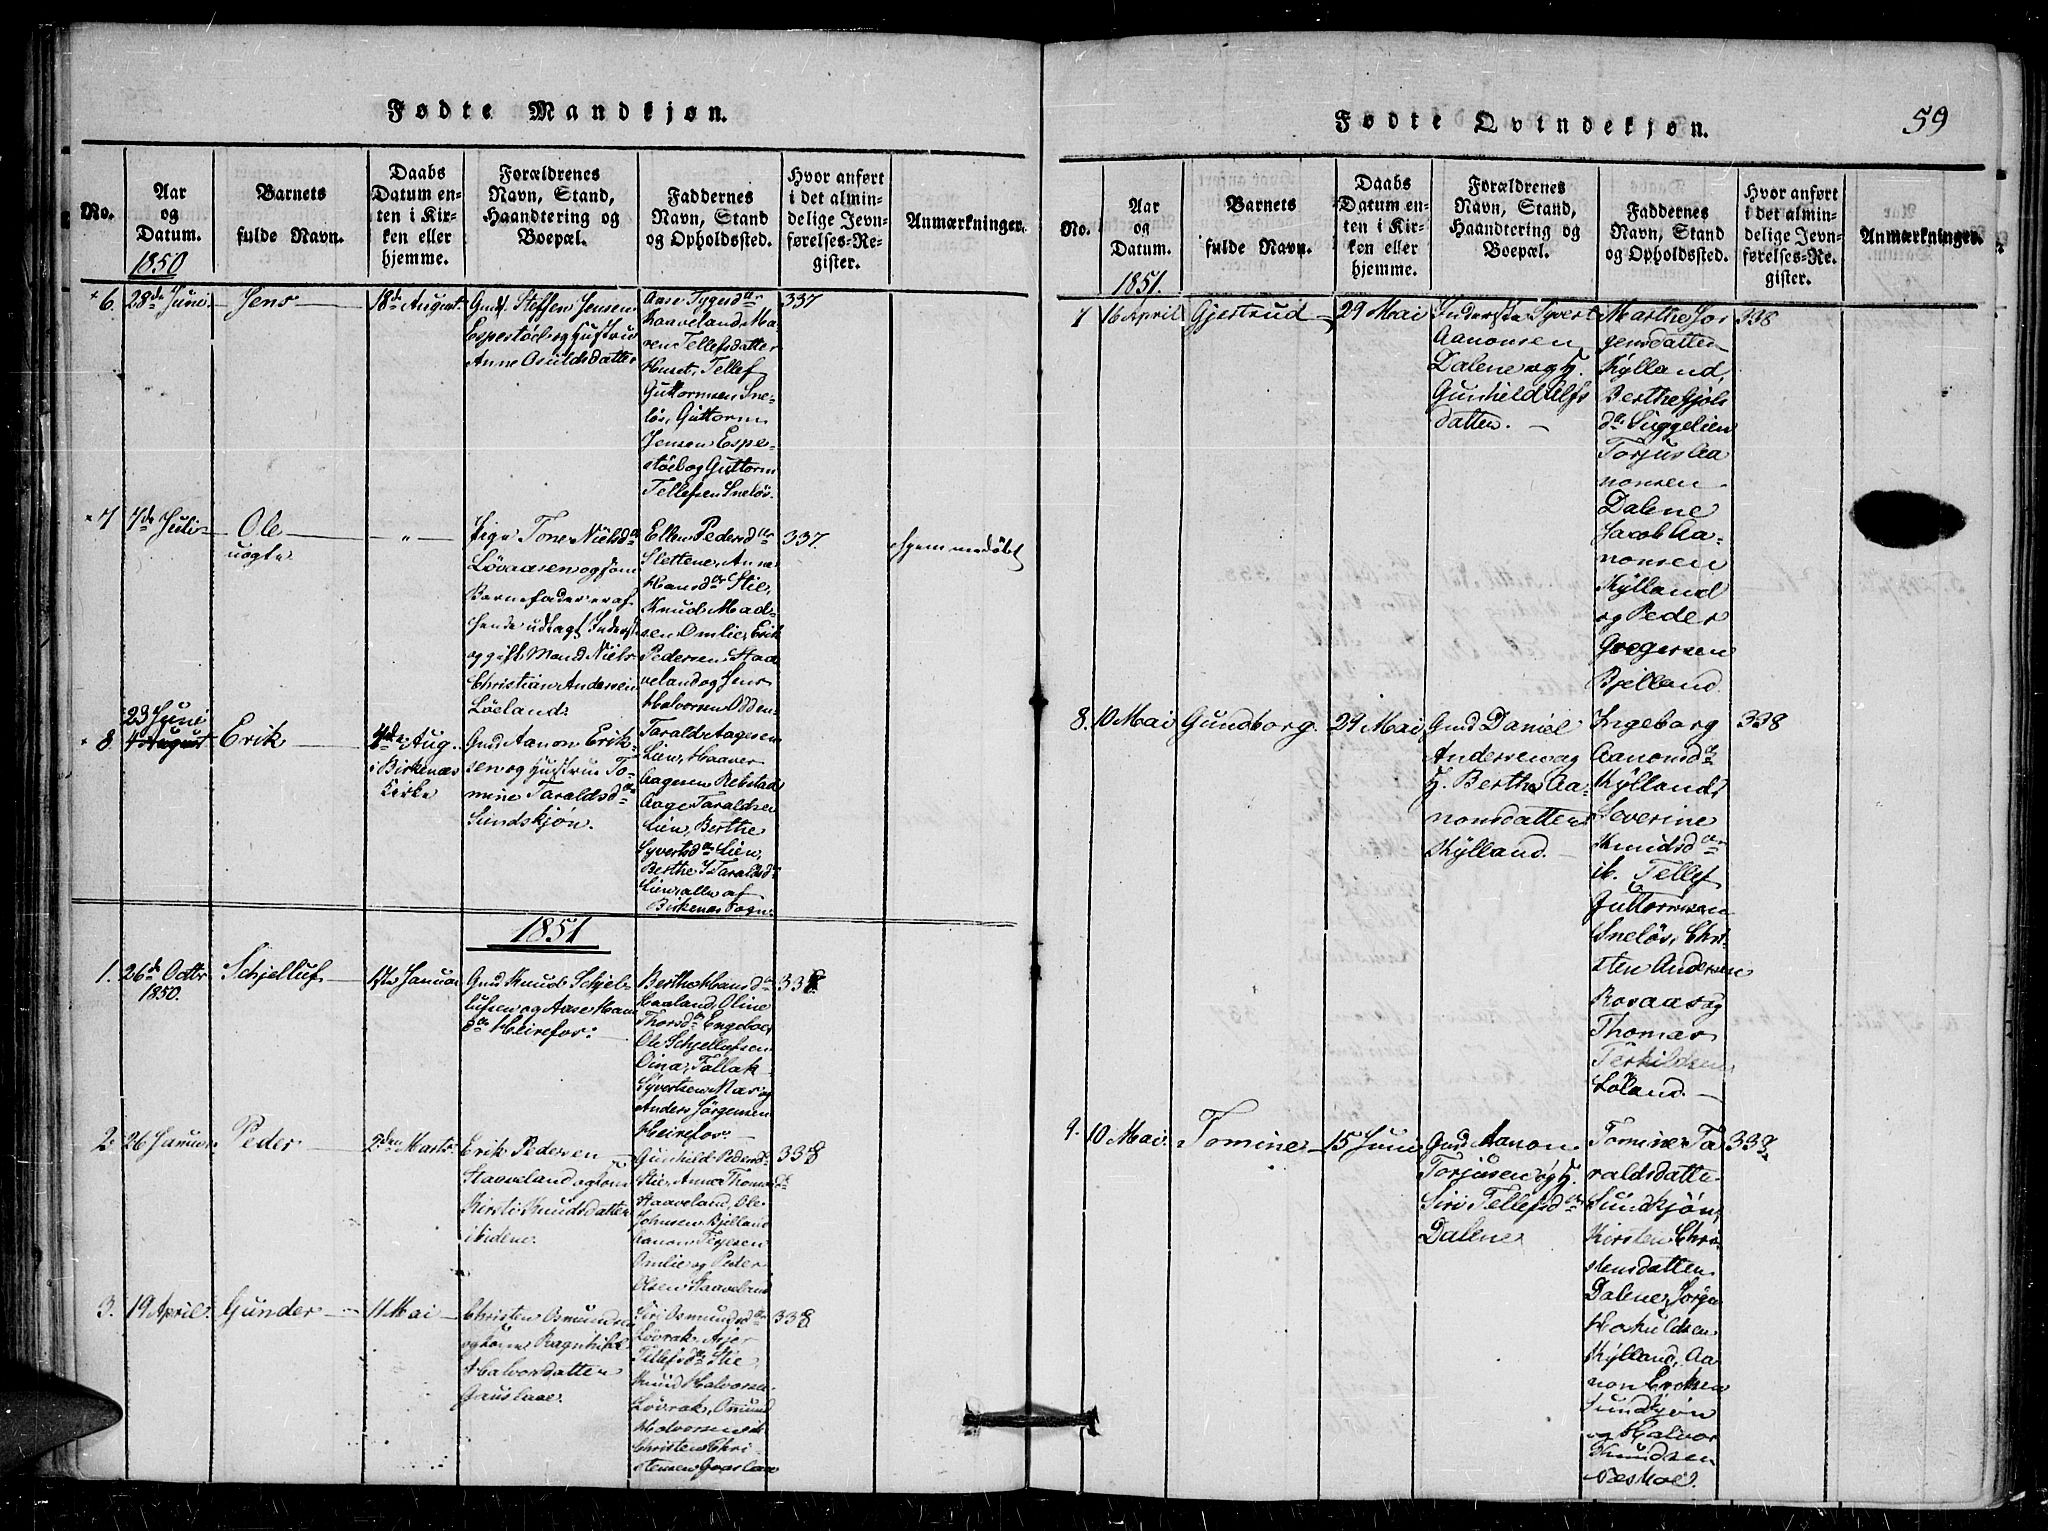 Fødte Mandkjøn.
No.
Aar
og
Datum.
1850
Barnets
fulde Navn.
Daabs
Datum en-
ten i Kir-
ken eller
hjemme.
Forældrenes
Navn, Stand,
Haandtering og
Boepæl.
Faddernes
Navn, Stand
og Opholdssted.
Hvor anført
i det almin-
delige Jevn-
førelses-Re-
gister.
Anmærkninger.
6.
28de Juni
Jens
18de August
Gmd. Steffen Jensen
Espestøl og Hustru
Anne Osuldsdatter
Aase Tygesdtr
Haaveland, Ma-
ren Tellefsdatter
Huset, Tellef
Guttormsen Sne-
løs, Guttorm
Jensen Espe-
støl og Guttorm
Tellefsen Sneløs.
337
7
7de Juli
Ole
uægte
"
Pige Tone Nielsdtr
Løvaasen og som
Barnefader er af
hende udlagt Inderst
og gift Mand Niels
Christian Andersen
Løeland
Ellen Pedersdtr
Slettene, Anne
Hansdtr Stie,
Knud Mad-
sen Omlie, Erik
Pedersen Staa-
veland og Jens
Halvorsen Odden
337.
hjemmedøbt
8.
23 Juni
4 August
Erik
4de Aug.
i Birkenæs
Kirke
Gmd Aanon Erik-
sen og Hustrue To-
mine Taraldsdtr
Sundskjøn.
Tarald Aagesen
Lien, Haaver
Aagesen Rebstad
Aage Taraldsen
Lien, Berthe
Syvertsdtr Lien,
Berthe T Taraldsdtr
Lien, alle af
Birkenæs Sogn.
1851
1.
26de Octbr
1850.
Schjelluf
1ste Januar
Gmd Knud Schjel-
lufsen og Aase Han
sdtr Heirefos.
Berthe Hansdtr
Haaland, Oline
Thorsdtr Engeboe,
Ole Schjellufsen
Oina, Tallak
Syvertsen Mas og
Anders Jørgensen
Heirefos
338
2.
26 Januar
Peder
2den Marts
Erik Pedersen
Staaveland og Kone
Kirsti Knudsdatter
ibidem.
Gunhild Pedersdtr
Stie, Anne Thomasdtr
Staaveland, Ole
Johnsen Bjelland
Aanon Terjesen
Omlie og Peder
Olsen Staaveland
338
3.
19 April
Gunder
11 Mai
Christen Osmundsen
og Kone Ragnhild
Halvorsdatter
Gauslaae
Siri Osmundsdtr
Løvrak, Asjer
Tellefsdtr Stie
Knud Halvorsen
Løvrak, Osmund
Halvorsen ib
Christen Chri-
stensen Gauslaae
338
Fødte Qvindekjøn.
59
No.
Aar
og
Datum.
1851.
Barnets
fulde Navn.
Daabs
Datum en-
ten i Kir-
ken eller
hjemme.
Forældrenes
Navn, Stand,
Haandtering og
Boepæl.
Faddernes
Navn, Stand
og Opholdssted.
Hvor anført
i det almin-
delige Jevn-
førelses-Re-
gister.
Anmærkninger.
7
16 April
Gjertrud
29 Mai
Inderste Syvert
Aanonsen
Dalene og H.
Gunhild Alfs
datter.
Marthe Jør
gensdatter
Kylland,
Berthe Gjøls
dtr Suggelien
Torjus Aa
nonsen
Dalene
Jacob Aa-
nonsen
Kylland
og Peder
Gregersen
Bjelland.
338
8.
10 Mai
Gundborg.
29 Mai
Gmd Daniel
Andersen og
H. Berthe Aa-
nonsdatter
Kylland.
Ingeborg
Aanonsdtr
Kylland,
Severine
Knudsdtr
ib. Tellef
Guttormsen
Sneløs, Chri-
sten Andersen
Rosaas og
Thomas
Terkildsen
Løland
338
9.
10 Mai.
Tomine
15 Juni
Gmd Aanon
Torjusen og H.
Siri Tellefsdtr
Dalene
Tomine Ta
raldsdatter
Sundskjøn,
Kirsten Chri-
stensdatter
Dalene, Jørgen
Hoskuldsen
Kylland, Aa
non Eriksen
Sundskjøn
og Halvor
Knudsen
338